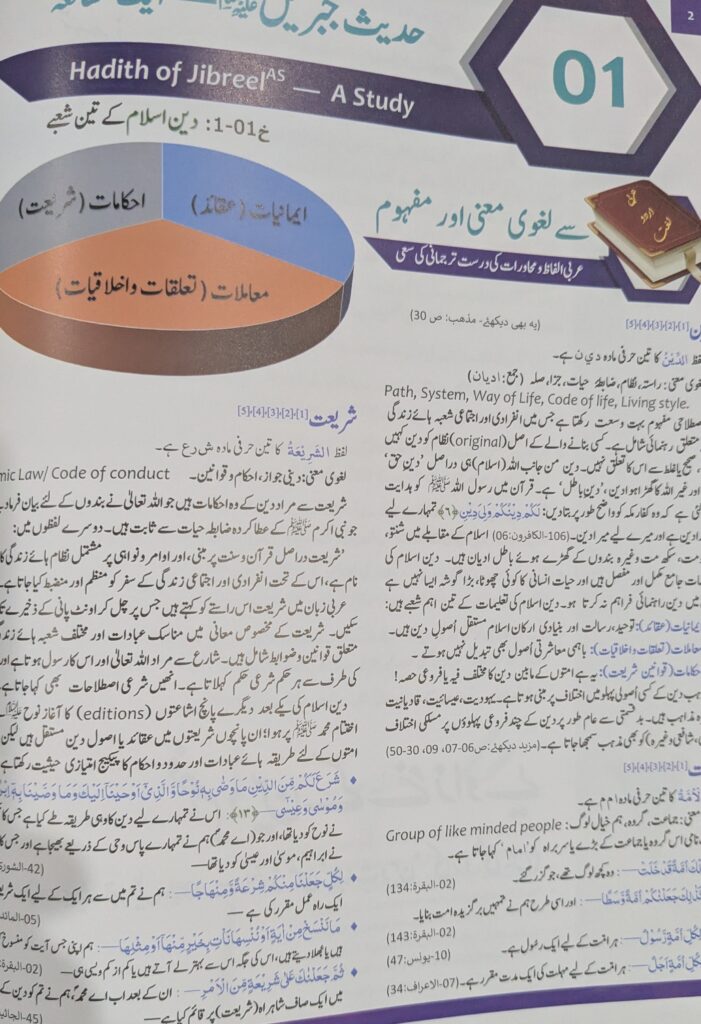 2
حدیث جبریلؑ
Hadith of Jibreel^AS — A Study
01
خ01-1: دین اسلام کے تین شعبے
احکامات (شریعت)
ایمانیات (عقائد)
معاملات (تعلقات و اخلاقیات)
عربی اردو لغت
سے لغوی معنی اور مفہوم
عربی الفاظ و محاورات کی درست ترجمانی کی سعی
(یہ بھی دیکھئے۔ مذہب: ص 30)
[1]،[2]،[3]،[4]،[5]
لفظ الدِّیْنُ کا تین حرفی مادہ د ی ن ہے۔
لغوی معنی: راستہ، نظام، ضابطۂ حیات، جزا، صلہ (جمع: ادیان)
Path, System, Way of Life, Code of life, Living style.
اصطلاحی مفہوم بہت وسعت رکھتا ہے جس میں انفرادی اور اجتماعی شعبہ ہائے زندگی
متعلق رہنمائی شامل ہے۔ کسی بنانے والے کے اصل (original) نظام کو دین کہیں
صحیح یا غلط سے اس کا تعلق نہیں۔ دین من جانب اللہ (اسلام) ہی دراصل 'دین حق'
اور غیر اللہ کا گھڑا ہوا دین، 'دین باطل' ہے۔ قرآن میں رسول اللہ ﷺ کو ہدایت
گئی ہے کہ وہ کفار مکہ کو واضح طور پر بتا دیں: لَکُمْ دِیْنُکُمْ وَلِیَ دِیْنِ ﴿۶﴾ تمہارے لیے
ارا دین ہے اور میرے لیے میرا دین۔ (106-الکافرون:06) اسلام کے مقابلے میں شنتو،
مت، سکھ مت وغیرہ بندوں کے گھڑے ہوئے باطل ادیان ہیں۔ دین اسلام کی
مات جامع عمل اور مفصل ہیں اور حیات انسانی کا کوئی چھوٹا، بڑا گوشہ ایسا نہیں ہے
میں دین راہنمائی فراہم نہ کرتا ہو۔ دین اسلام کی تعلیمات کے تین اہم شعبے ہیں:
ایمانیات (عقائد): توحید، رسالت اور بنیادی ارکان اسلام مستقل اُصول دین ہیں۔
معاملات (تعلقات و اخلاقیات): باہمی معاشرتی اُصول بھی تبدیل نہیں ہوتے۔
احکامات (قوانین شریعت): یہ ہے امتوں کے مابین دین کا مختلف فیہ یا فروعی حصہ!
ہب دین کے کسی اُصولی پہلو میں اختلاف پر مبنی ہوتا ہے۔ یہودیت، عیسائیت، قادیانیت
ہ مذاہب ہیں۔ بدقسمتی سے عام طور پر دین کے چند فروعی پہلوؤں پر مسلکی اختلاف
، شافعی وغیرہ) کو بھی مذہب سمجھا جاتا ہے۔ (مزید دیکھئے: ص06-07، 09، 30-50)
[1]،[2]،[3]،[4]،[5]
لأمّۃ کا تین حرفی مادہ ا م م ہے۔
معنی: جماعت، گروہ، ہم خیال لوگ: Group of like minded people
نامی اس گروہ یا جماعت کے بڑے یا سربراہ کو 'امام' کہا جاتا ہے۔
تِلْکَ اُمَّۃٌ قَدْ خَلَتْ—: وہ کچھ لوگ تھے، جو گزر گئے۔ (02-البقرۃ:134)
کَذٰلِکَ جَعَلْنٰکُمْ اُمَّۃً وَّسَطًا—: اور اسی طرح ہم نے تمہیں برگزیدہ امت بنایا۔
(02-البقرۃ:143)
لِکُلِّ اُمَّۃٍ رَّسُوْلٌ—: ہر امت کے لیے ایک رسول ہے۔ (10-یونس:47)
لِکُلِّ اُمَّۃٍ اَجَلٌ—: ہر امت کے لیے مہلت کی ایک مدت مقرر ہے۔ (07-الاعراف:34)
شریعت [1]،[2]،[3]،[4]،[5]
لفظ الشَّرِیْعَۃُ کا تین حرفی مادہ ش ر ع ہے۔
لغوی معنی: دینی جواز، احکام و قوانین۔ mic Law/ Code of conduct
شریعت سے مراد دین کے وہ احکامات ہیں جو اللہ تعالیٰ نے بندوں کے لئے بیان فرما د
جو نبی اکرم ﷺ کے عطا کردہ ضابطہ حیات سے ثابت ہیں۔ دوسرے لفظوں میں:
'شریعت دراصل قرآن و سنت پر مبنی، اور اوامر و نواہی پر مشتمل نظام ہائے زندگی کا
نام ہے، اس کے تحت انفرادی اور اجتماعی زندگی کے سفر کو منظم اور منضبط کیا جاتا ہے۔
عربی زبان میں شریعت اس راستے کو کہتے ہیں جس پر چل کر اونٹ پانی کے ذخیرے تک
سکیں۔ شریعت کے مخصوص معانی میں مناسک عبادات اور مختلف شعبہ ہائے زند
متعلق قوانین و ضوابط شامل ہیں۔ شارع سے مراد اللہ تعالیٰ اور اس کا رسول ہوتا ہے اور
کی طرف سے ہر حکم شرعی حکم کہلاتا ہے۔ انھیں شرعی اصطلاحات بھی کہا جاتا ہے۔
دین اسلام کی یکے بعد دیگرے پانچ اشاعتوں (editions) کا آغاز نوحؑ
اختتام محمد ﷺ پر ہوا؛ ان پانچوں شریعتوں میں عقائد یا اصول دین مستقل ہیں لیکن
امتوں کے لئے طریقہ ہائے عبادات اور حدود و احکام کا پیکیج امتیازی حیثیت رکھتا ہے
♦ شَرَعَ لَکُمْ مِّنَ الدِّیْنِ مَا وَصّٰی بِہٖ نُوْحًا وَّالَّذِیْٓ اَوْحَیْنَآ اِلَیْکَ وَمَا وَصَّیْنَا بِہٖٓ
وَمُوْسٰی وَعِیْسٰٓی —﴿۱۳﴾: اس نے تمہارے لیے دین کا وہی طریقہ طے کیا ہے جس کا
نے نوح کو دیا تھا، اور جو (اے محمدؐ) ہم نے تمہارے پاس وحی کے ذریعے بھیجا ہے اور جس کا
نے ابراہیم، موسیٰ اور عیسیٰ کو دیا تھا— (42-الشوریٰ
♦ لِکُلٍّ جَعَلْنَا مِنْکُمْ شِرْعَۃً وَّمِنْھَاجًا—: ہم نے تم میں سے ہر ایک کے لیے ایک شر
ایک راہ عمل مقرر کی ہے — (05-المائد
♦ مَا نَنْسَخْ مِنْ اٰیَۃٍ اَوْ نُنْسِھَا نَاْتِ بِخَیْرٍ مِّنْھَآ اَوْ مِثْلِھَا—: ہم اپنی جس آیت کو منسوخ
ہیں یا بھلا دیتے ہیں، اس کی جگہ اس سے بہتر لے آتے ہیں یا کم از کم ویسی ہی— (02-البقرۃ
♦ ثُمَّ جَعَلْنٰکَ عَلٰی شَرِیْعَۃٍ مِّنَ الْاَمْرِ—: ان کے بعد اب اے محمدؐ، ہم نے تم کو دین کے
میں ایک صاف شاہراہ (شریعت) پر قائم کیا ہے— (45-الجاثیہ